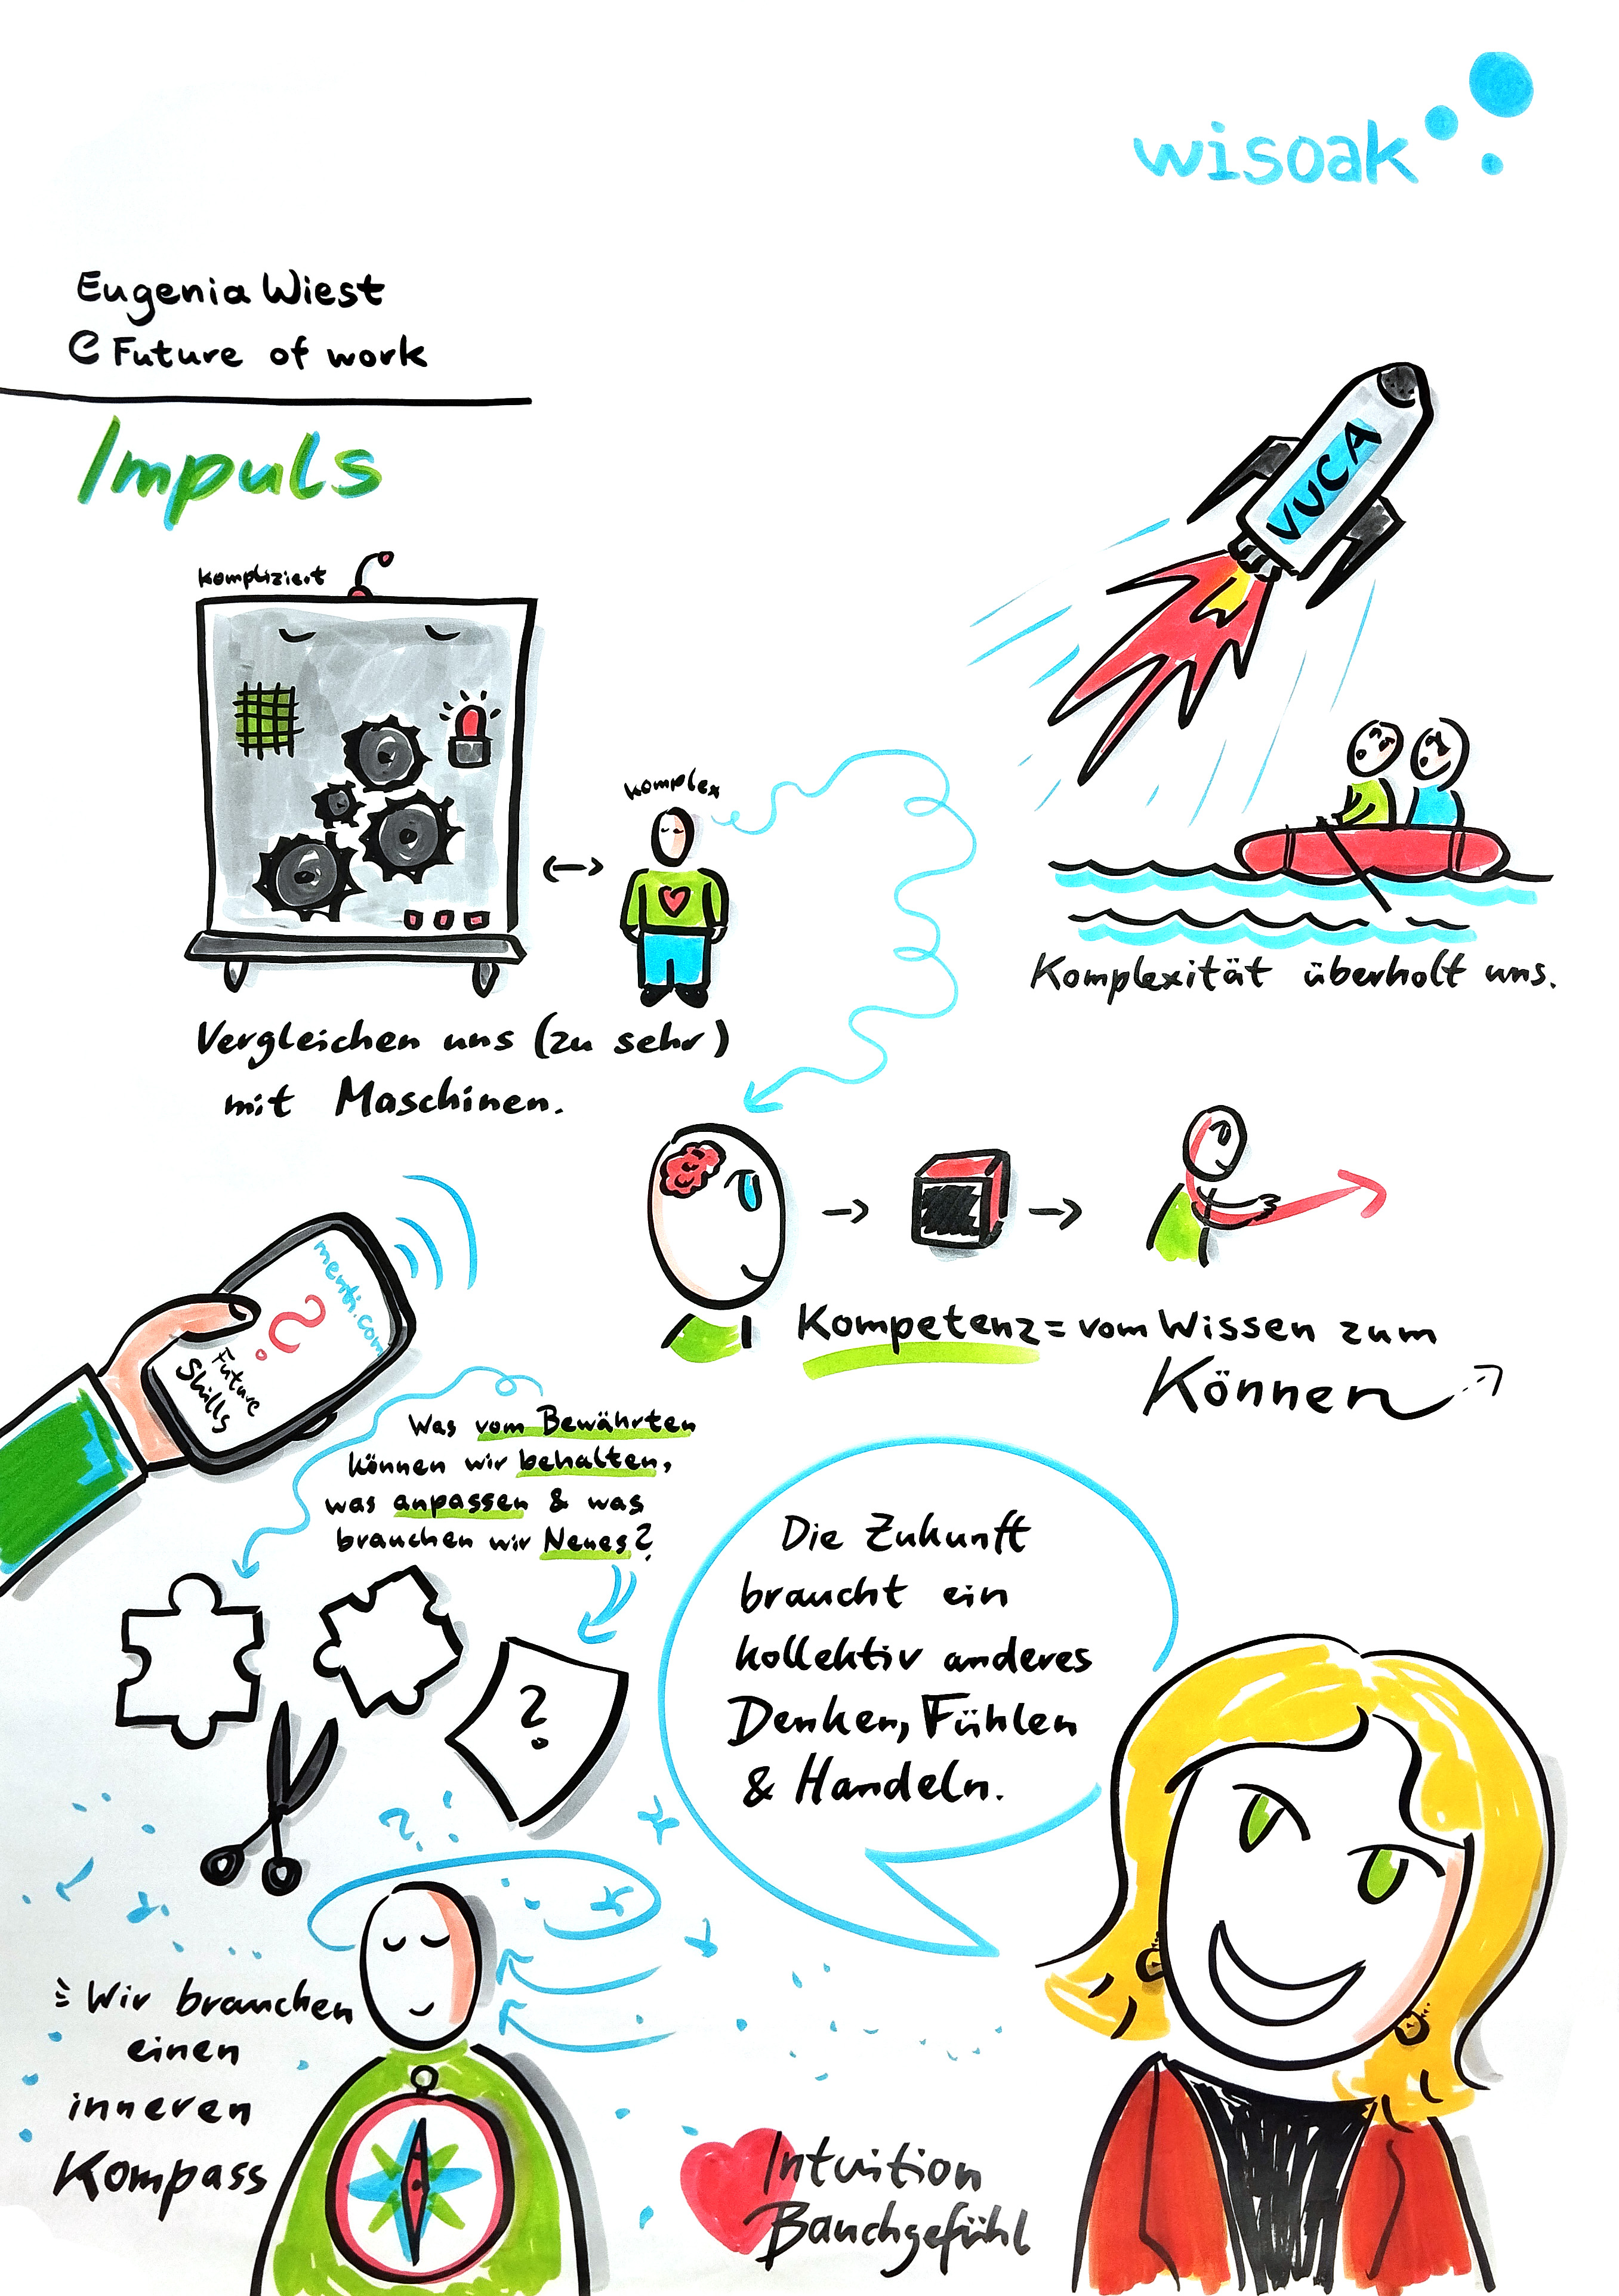 wisoak
Eugenia Wiest
@ Future of work
Impuls
VUCA
kompliziert
komplex
Komplexität überholt uns.
Vergleichen uns (zu sehr)
mit Maschinen.
menti.com
?
Future
Skills
Kompetenz = vom Wissen zum
Können
Was vom Bewährten
können wir behalten,
was anpassen & was
brauchen wir Neues?
?
Die Zukunft
braucht ein
kollektiv anderes
Denken, Fühlen
& Handeln.
?
Wir brauchen
einen
inneren
Kompass
Intuition
Bauchgefühl